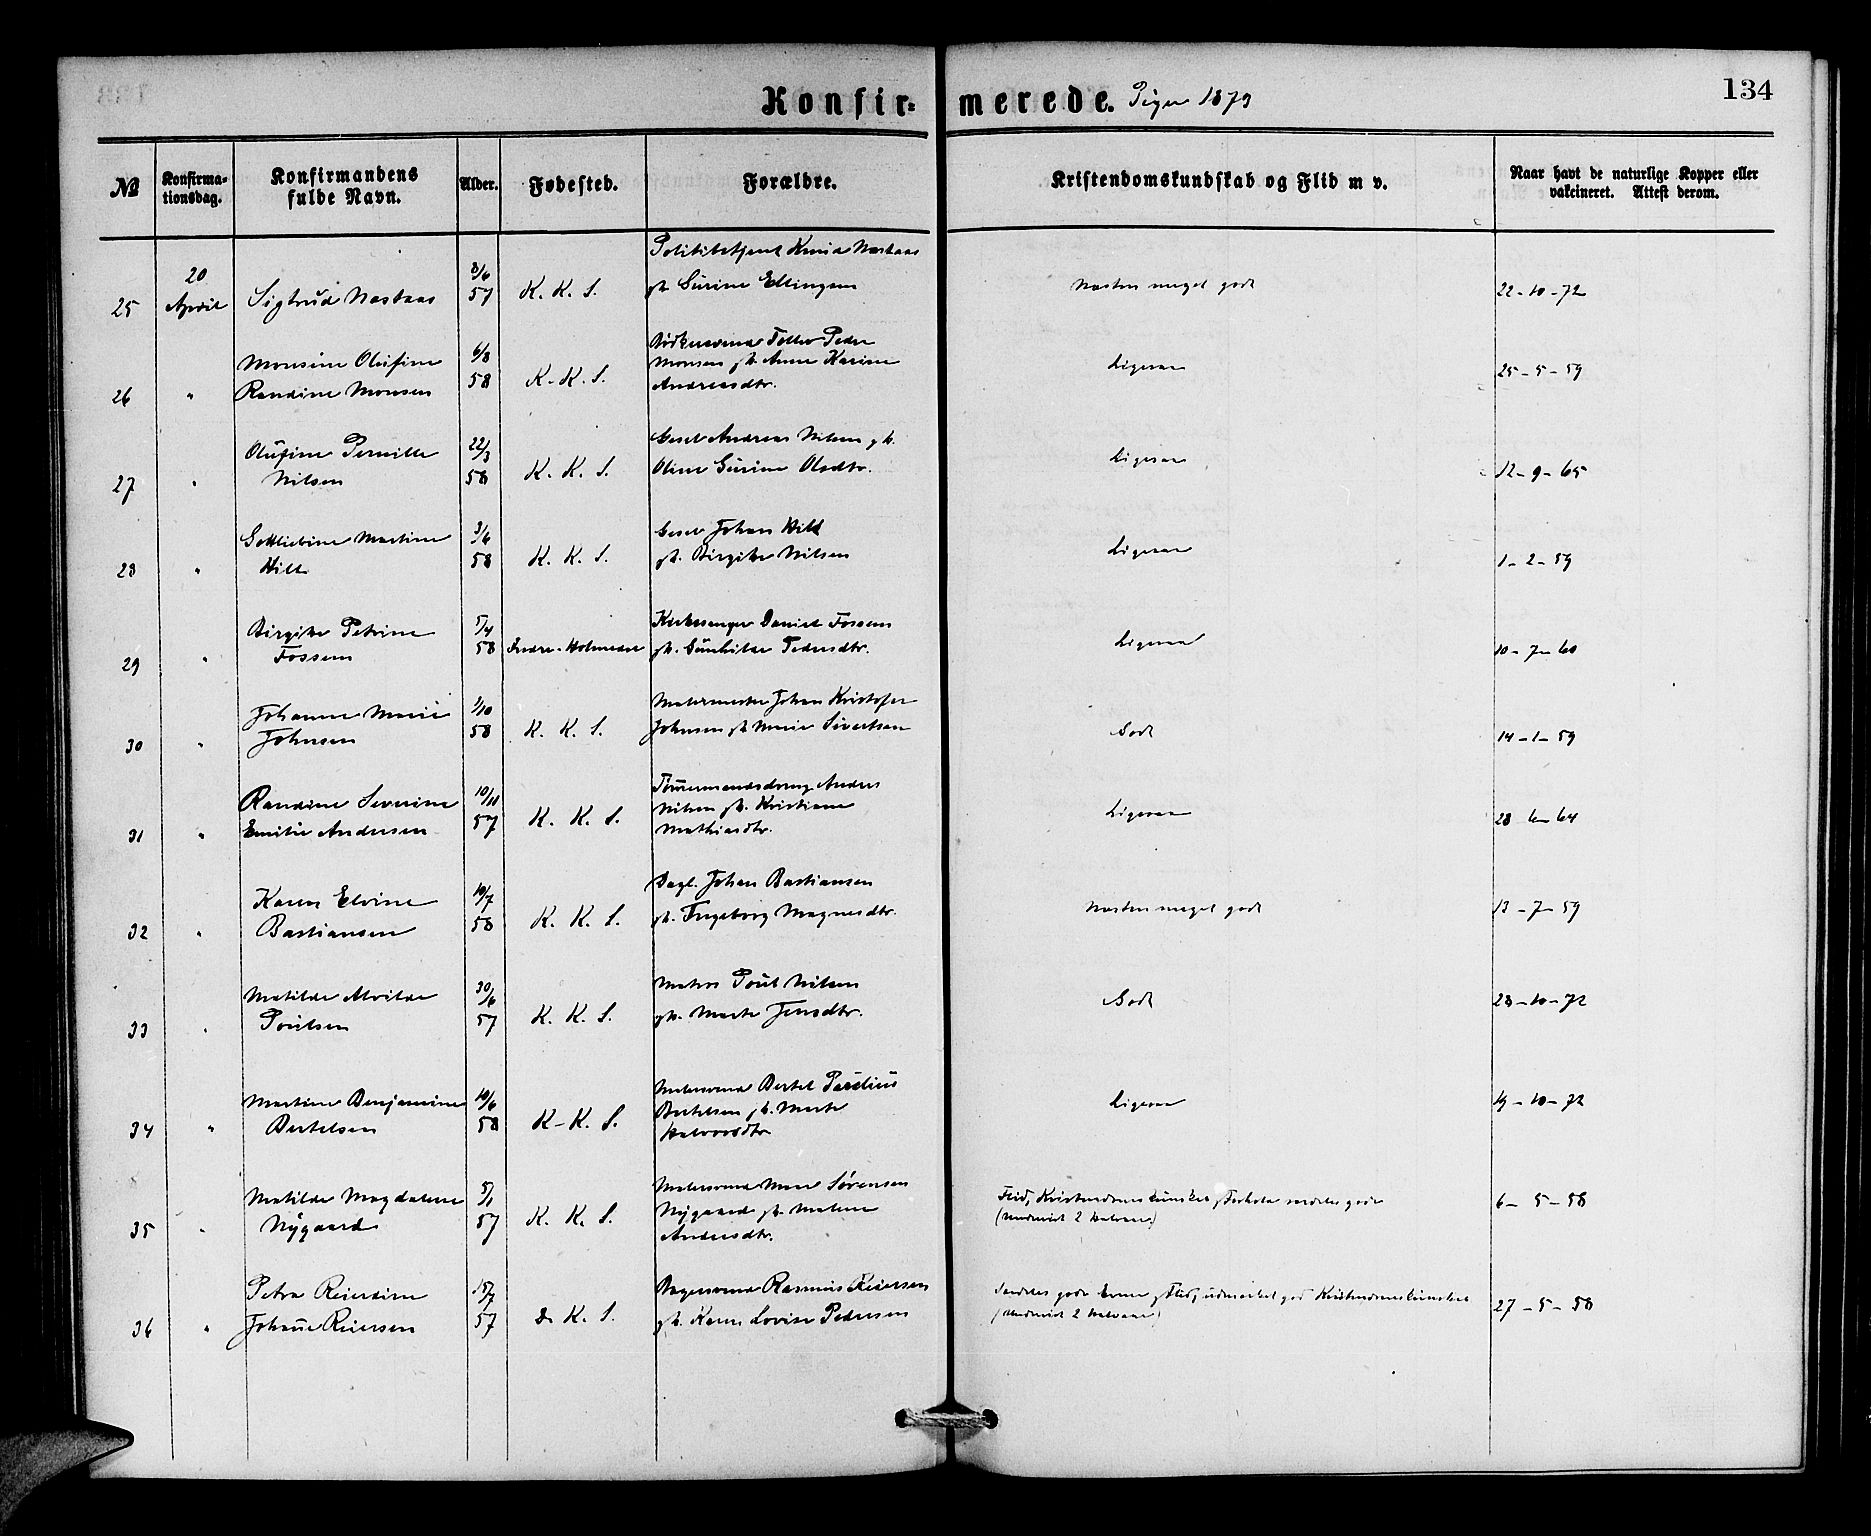 Konfirmerede. Piger 1873
134
No
Konfirma-
tionsdag.
Konfirmandens
fulde Navn.
Alder.
Fødested.
Forældre.
Kristendomskundskab og Flid m v.
Naar havt de naturlige Kopper eller
vakcineret. Attest derom.
25
20
April
Sigtrud Næstaas
3/6
57
K. K. S.
Politibetjent Knud Næstaas
gh. Gurine Ellingsen
Næsten meget godt
22-10-72
26
"
Monsine Olufine
Randine Monsen
6/8
58
K. K. S.
Bødkersvend Peder
Monsen gh. Anne Karine
Andreasdtr.
Ligesaa
25-5-59
27
"
Olufine Pernille
Nilsen
22/3
58
K. K. S.
Gesel Andreas Nilsen gh.
Oline Gurine Olsdtr.
Ligesaa
12-9-65
28
"
Gottliebine Martine
Hill
3/6
58
K. K. S.
Gesel Johan Hill
gh. Birgitte Nilsen
Ligesaa
1-2-59
29
"
Birgitte Petrine
Fossem
5/4
58
Indre-Holmedal
Kirkesanger Daniel Fossem
gh. Gunhilde Pedersdtr.
Ligesaa
10-7-60
30
"
Johanne Marie
Johnsen
2/10
58
K. K. S.
Malermester Johan Kristofer
Johnsen gh Marie Sivertsen
Godt
14-1-59
31
"
Randine Severine
Emilie Andersen
10/11
57
K. K. S.
Tømmermandsdreng Anders
Nilsen gh. Kristiane
Mathiasdtr.
Ligesaa
28 6 64
32
"
Karen Elvine
Bastiansen
10/7
58
K. K. S.
Dagl. Johan Bastiansen
gh. Ingeborg Magnesdtr.
Næsten meget godt
13-7-59
33
"
Matilde Alvilde
Poulsen
30/6
57
K. K. S.
Matros Poul Nilsen
gh. Marte Jensdtr.
Godt
28-10-72
34
"
Martine Benjamine
Bertelsen
10/6
58
K. K. S.
Malersvend Bertel
Bertelsen gh. Marte
Halvorsdtr
Ligesaa
19-10-72
35
"
Matilde Magdalene
Nygaard
5/1
57
K. K. S.
Malersvend Mons Sørensen
Nygaard gh. Malene
Andersdtr.
Flid, Kristendomskundskab og Forhold særdeles gode
(Undervist 2 Halvaar)
6-5-58
36
"
Petra Reierdine
Johanne Reiersen
15/7
57
D. K. S.
Bagersvend Rasmus Reiersen
gh. Karen Lovise Pedersen
Særdeles gode Evner og Flid, udmærket god Kristendomskundskab
(Undervist 2 Halvaar)
27-5-58